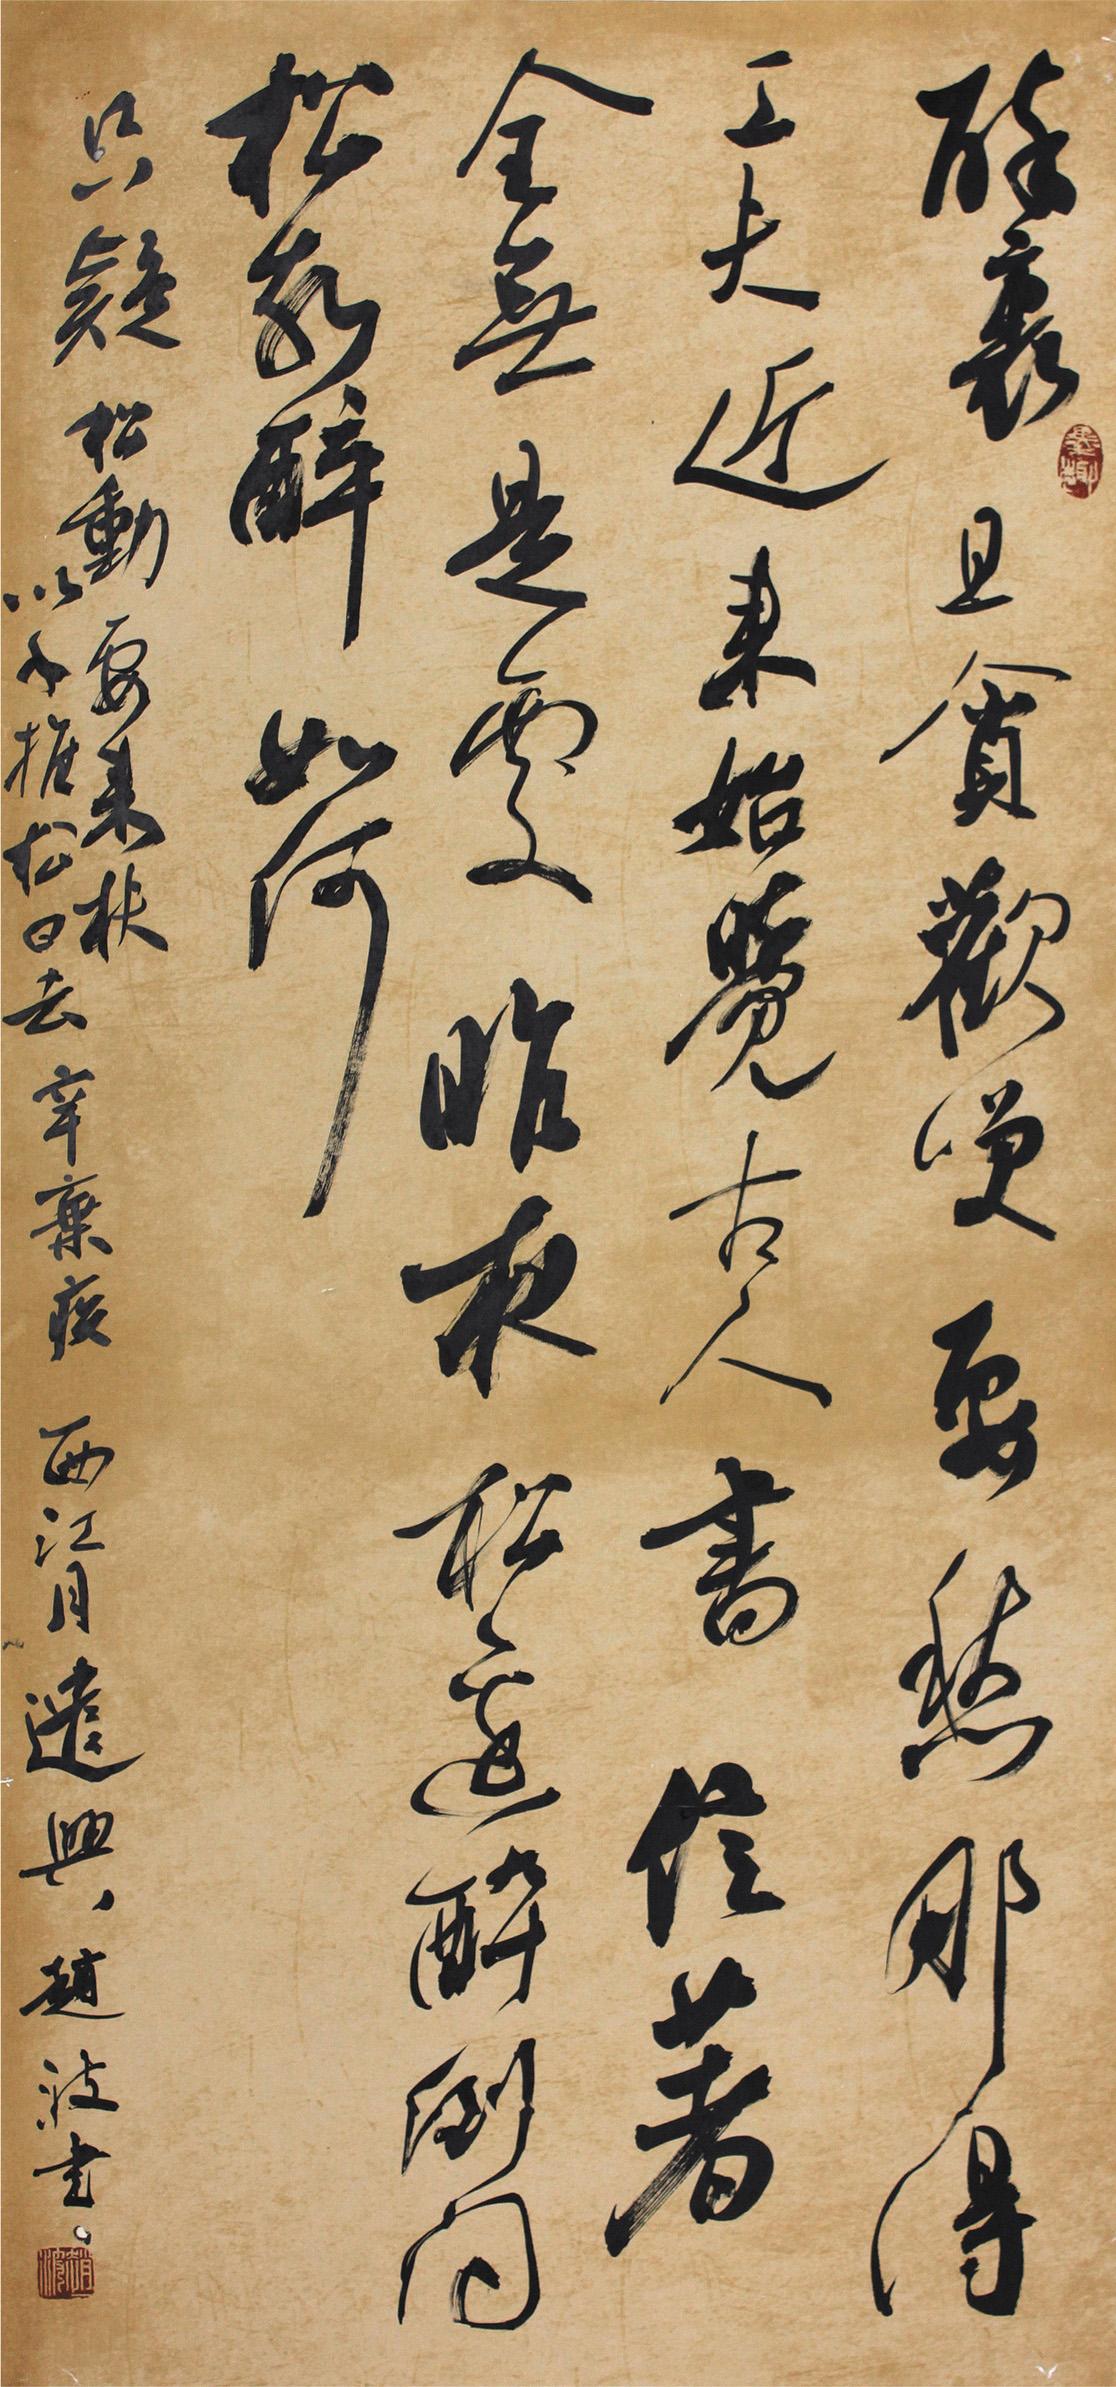 醉裏且貪歡笑要愁那得
工夫近來始覺古人書信著
全無是處昨夜松邊醉倒问
松我醉如何
只疑松動要來扶
以手推松曰去辛棄疾西江月遣興趙波書
趙波